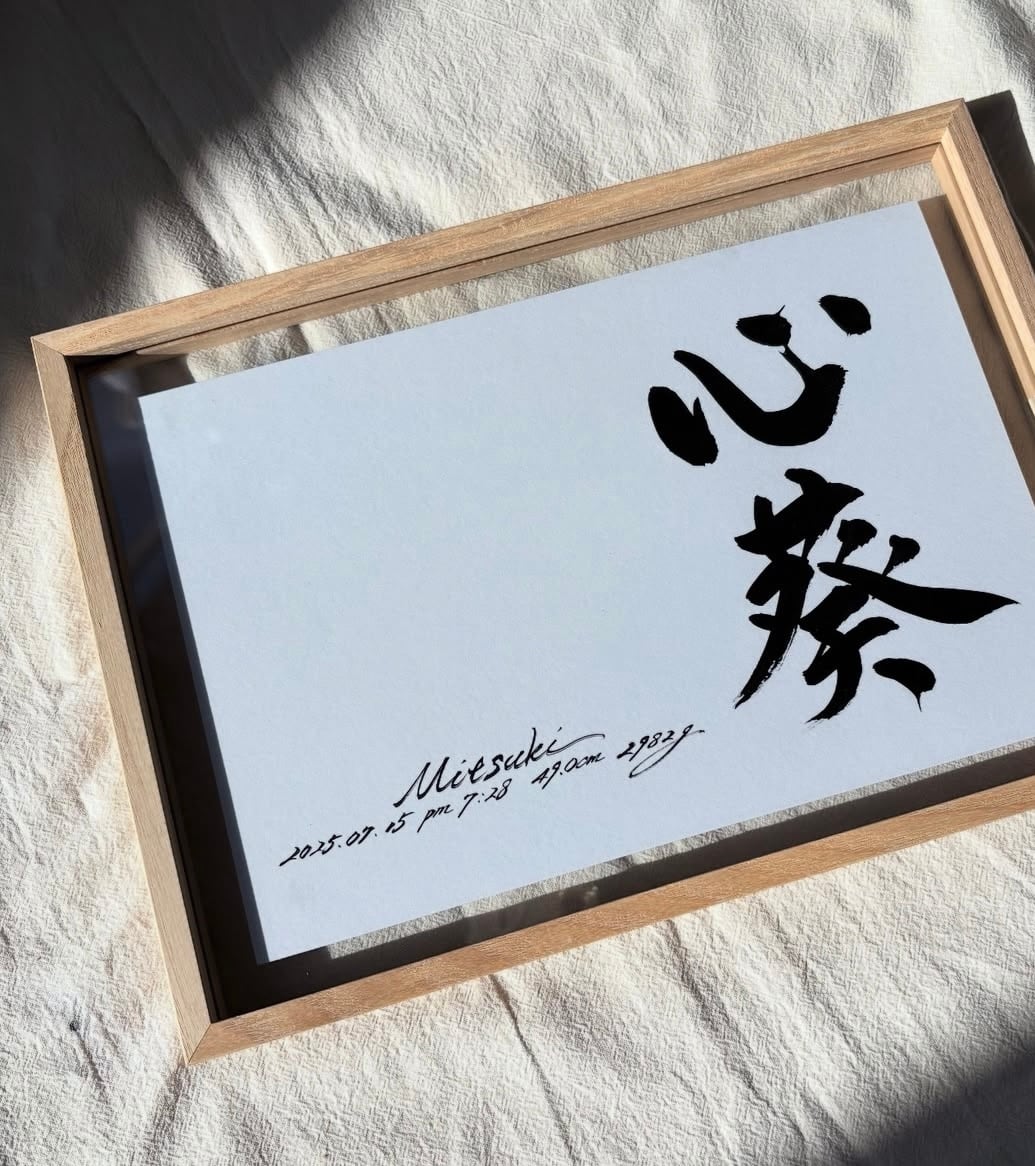 心葵
Mitsuki
2025.07.15 pm 7:28 49.0cm 2982g